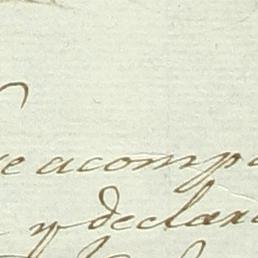 e acomp
y declara